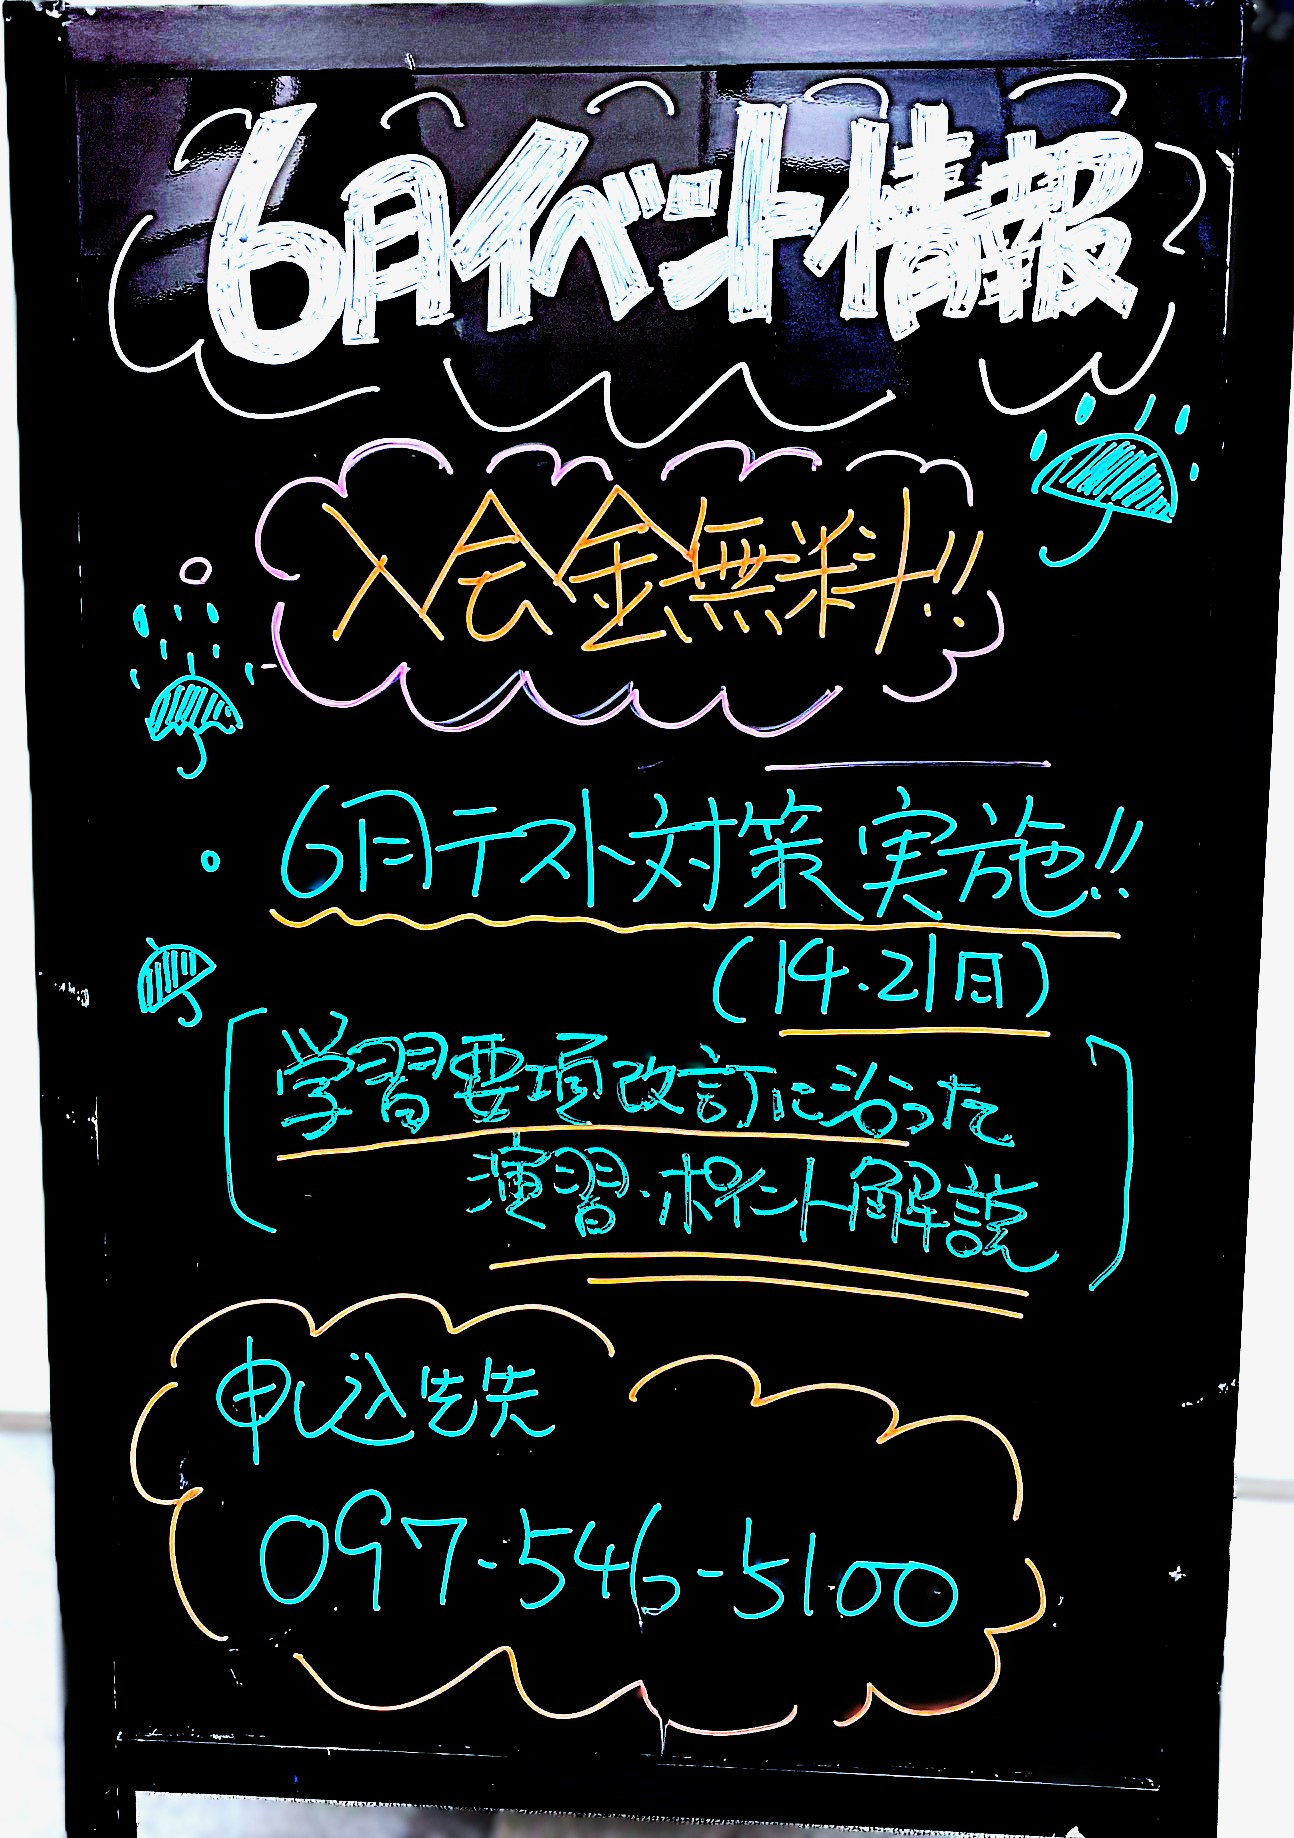 6月イベント情報
入会金無料!!
6月テスト対策実施!!
(14・21日)
学習要項改訂に沿った
演習・ポイント解説
申し込み先
097-546-5100